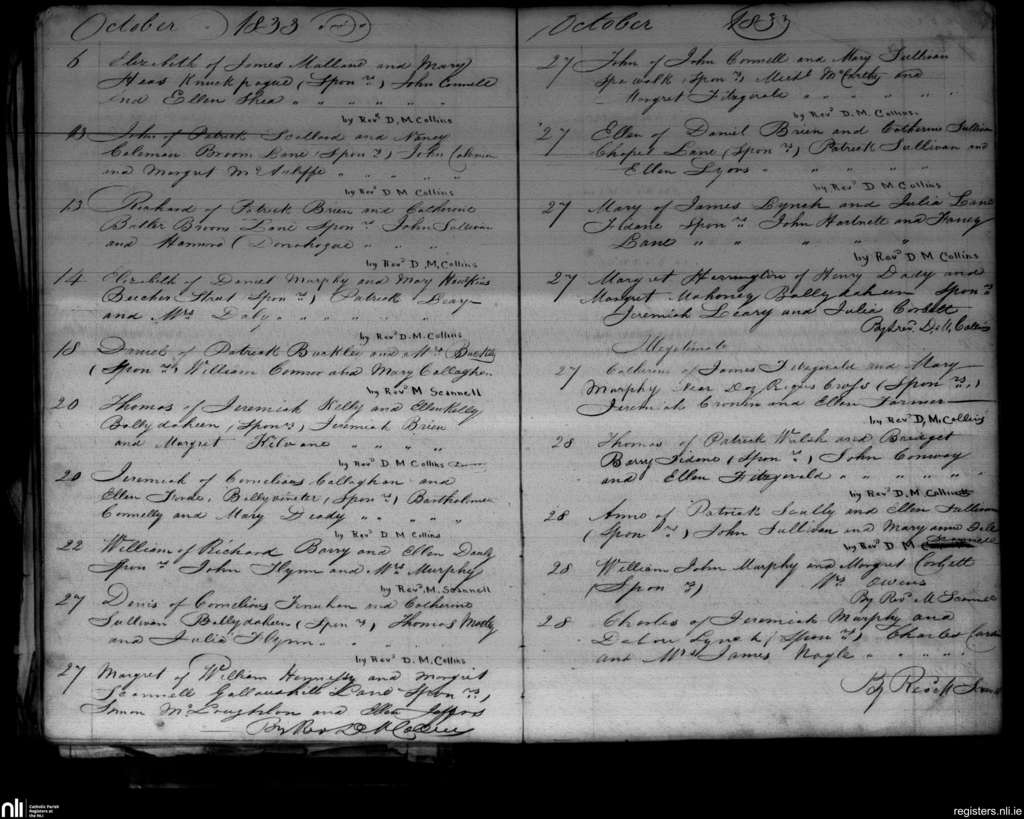 October 1833
6 Elizabeth of James Mallane and Mary
Heas Knuckpogue (Spon.rs) John Connell
and Ellen Shea " " " " "
by Rev.d D, M. Collins
13 John of Patrick Scollard and Nancy
Coleman Broom Lane (Spon.rs) John Coleman
and Margret McAuliffe " " " "
by Rev.d D M Collins
13 Richard of Patrick Brien and Catherine
Butler Broom Lane Spon.rs John Sullivan
and Hannora (Donohogue " " "
by Rev.d D, M, Collins
14 Elizebeth of Daniel Murphy and Mary Hawkins
Beecher Street Spon.rs) Patrick Leary
and Mrs Daly " " " " "
by Rev.d D. M. Collins
18 Daniel of Patrick Buckley and Mrs Buckley
(Spon.rs) William Connor and Mary Callaghan
by Rev.d M Scannell
20 Thomas of Jeremiah Kelly and Ellen Kelly
Ballydaheen (Spon.rs) Jeremiah Brien
and Margret Kilvane " " "
by Rev.d D. M Collins
20 Jeremiah of Cornelious Callaghan and
Ellen (Spon.rs) Bartholomew
Connelly and Mary Deady " " " " "
by Rev.d D. M Collins
22 William of Richard Barry and Ellen Dauly
Spon.rs John Flynn and Mrs Murphy
by Rev.d M. Scannell
27 Denis of Cornelious Linehan and Catherine
Sullivan Ballydaheen (Spon.rs) Thomas
and Julia Flynn " " " "
by Rev.d D. M. Collins
27 Margret of William Hennessy and Margret
Scannell Lane Spon.rs)
Simon McLoughlon and Ellen
By Rev D M Collins
October 1833
27 John of John Connell and Mary Sullivan
Spa walk (Spon.rs) Michl McCarthy and
Margret Fitzgerald " " " " "
by Rev.d D M Collins.
27 Ellen of Daniel Brien and Catherine Sullivan
Chapel Lane (Spon.rs) Patrick Sullivan and
Ellen Lyons " " "
by Rev.d D. M. Collins
27 Mary of James Lynch and Julia Lane
Fidane Spon.rs John Hartnett and Fanny
Lane " " " " "
by Rev.d D M Collins
27 Margret Herrington of Henry Dady and
Margret Mahoney Ballydaheen Spon.rs
Jeremiah Leary and Julia Corbett
By Rev. D M. Collins
Illegitimate
27 Catherine of James Fitzgerald and Mary
Murphy Near Cross (Spon.rs)
Jeremiah Cronin and Ellen Farmer
by Rev.d D, M, Collins
28 Thomas of Patrick Walsh and Bridget
Barry Fidane (Spon.rs) John Conway
and Ellen Fitzgerald " " " " "
by Rev.d D. M. Collins
28 Anne of Patrick Scully and Ellen Sullivan
(Spon.rs) John Sullivan and Mary anne
Scannell
by Rev.d D. M C
28 William John Murphy and Margret Corbett
(Spon.rs) Mrs Owens
By Rev.d M Scannell
28 Charles of Jeremiah Murphy and
Lynch (Spon.rs) Charles
and Mrs James Nagle " " " " "
By Rev.d M
nli
Catholic Parish
Registers at
the NLI
registers.nli.ie